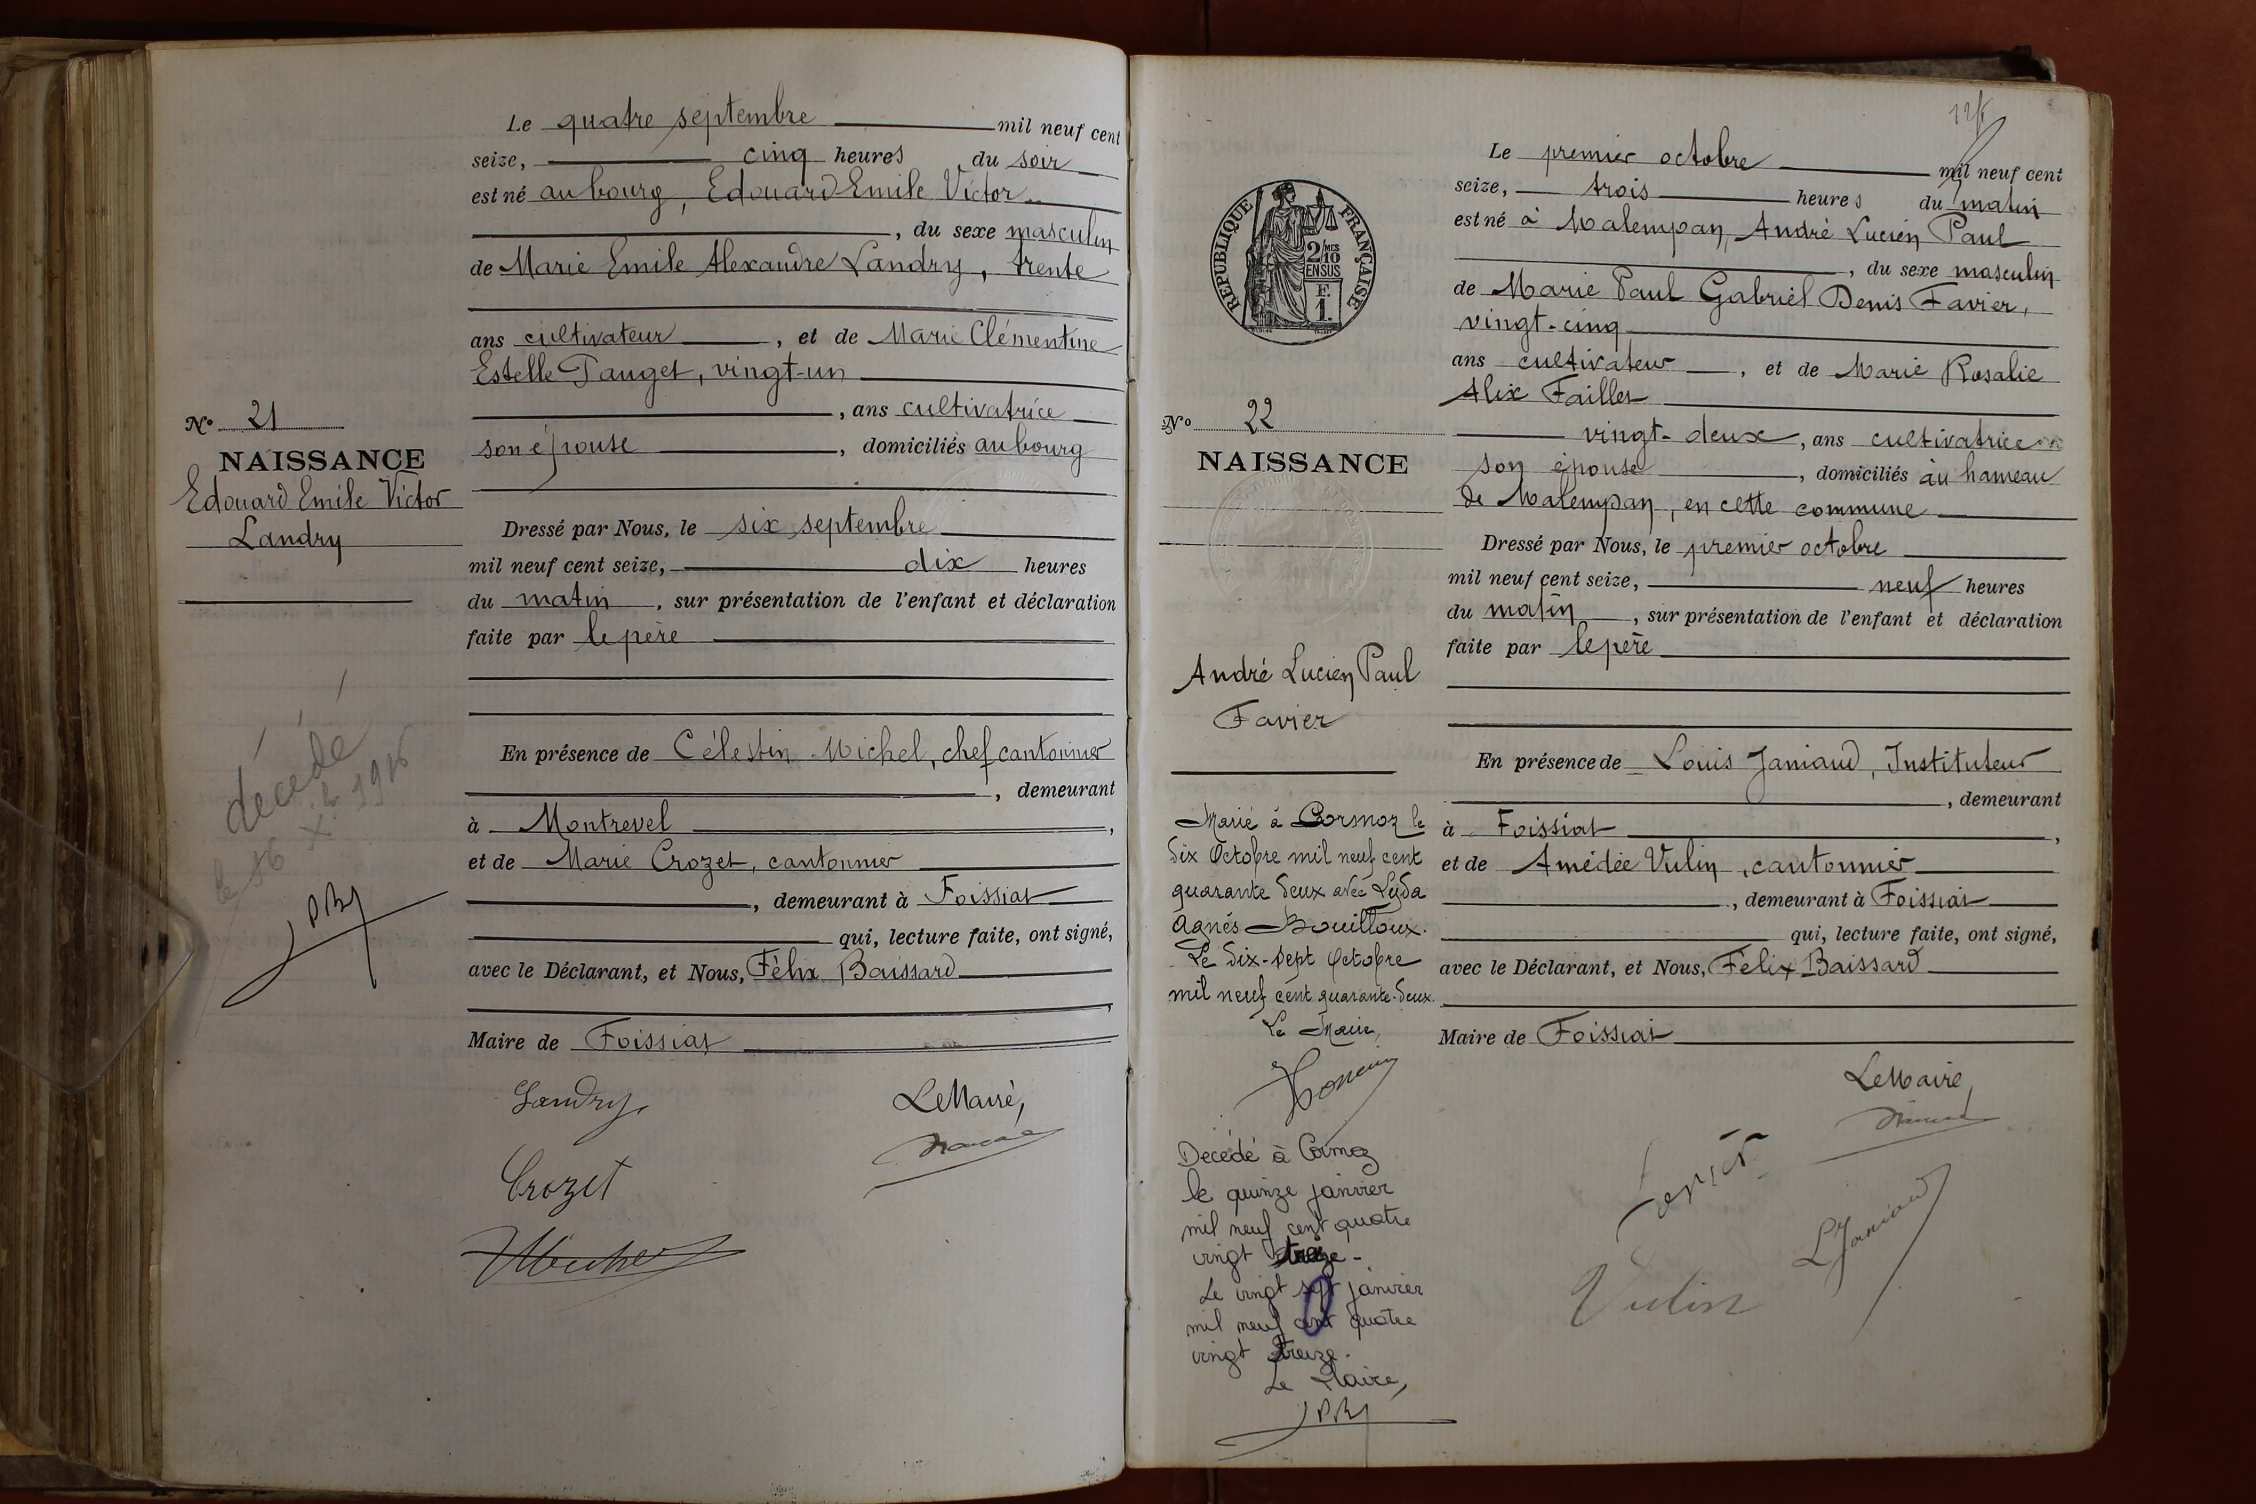 Le quatre septembre mil neuf cent
seize, cinq heures du soir
est né au bourg, Edouard Emile Victor
, du sexe masculin
de Marie Emile Alexandre Landry, trente
ans cultivateur , et de Marie Clémentine
Estelle Pauget, vingt-un
, ans cultivatrice
son épouse , domiciliés au bourg
N° 21
NAISSANCE
Edouard Emile Victor
Landry
Dressé par Nous, le six septembre
mil neuf cent seize, dix heures
du matin , sur présentation de l'enfant et déclaration
faite par le père
décédé
En présence de Célestin Michel, chef cantonnier
, demeurant
à Montrevel ,
et de Marie Crozet, cantonnier
, demeurant à Foissiat
qui, lecture faite, ont signé,
avec le Déclarant, et Nous, Félix Baissard
,
Maire de Foissiat
Landry
Le Maire,
Crozet
Michel
Le premier octobre mil neuf cent
seize, trois heures du matin
est né à Malempan, André Lucien Paul
, du sexe masculin
de Marie Paul Gabriel Denis Favier,
vingt-cinq
ans cultivateur , et de Marie Rosalie
Alix Failler
vingt-deux , ans cultivatrice
son épouse , domiciliés au hameau
de Malempan, en cette commune
RÉPUBLIQUE FRANÇAISE
2/10
MES
EN SUS
E.
1.
N° 22
NAISSANCE
André Lucien Paul
Favier
Dressé par Nous, le premier octobre
mil neuf cent seize, neuf heures
du matin , sur présentation de l'enfant et déclaration
faite par le père
En présence de Louis Janiaud, Instituteur
, demeurant
à Foissiat ,
et de Amédée Vulin, cantonnier
, demeurant à Foissiat
qui, lecture faite, ont signé,
avec le Déclarant, et Nous, Félix Baissard
Maire de Foissiat
Le Maire,
Favier
L Janiaud
Vulin
Marié à Cormoz le
dix Octobre mil neuf cent
quarante deux avec Lyda
Agnés Bouilloux.
Le dix-sept Octobre
mil neuf cent quarante-deux.
Le Maire,
Decédé à Cormoz
le quinze janvier
mil neuf cent quatre
vingt treize -
Le vingt sept janvier
mil neuf cent quatre
vingt treize.
Le Maire,